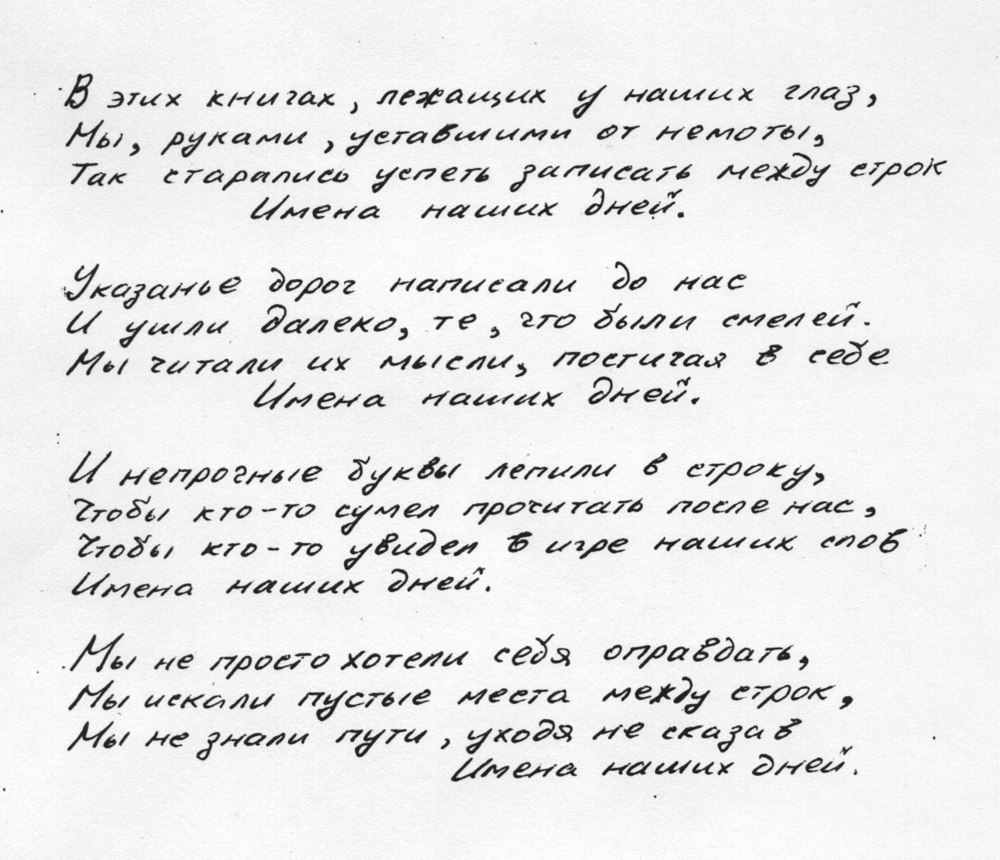 В этих книгах, лежащих у наших глаз,
Мы, руками, уставшими от немоты,
Так старались успеть записать между строк
Имена наших дней.
Указанье дорог написали до нас
И ушли далеко, те, что были смелей.
Мы читали их мысли, постигая в себе
Имена наших дней.
И непрочные буквы лепили в строку,
Чтобы кто-то сумел прочитать после нас,
Чтобы кто-то увидел в игре наших слов
Имена наших дней.
Мы не просто хотели себя оправдать,
Мы искали пустые места между строк,
Мы не знали пути, уходя не сказав
Имена наших дней.